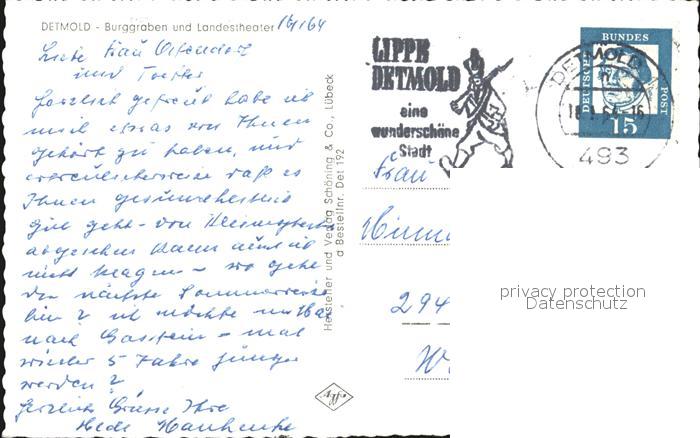 DETMOLD - Burggraben und Landestheater 18/1/64
Liebe Frau
und Tochter
Herzlich gefreut habe ich
mich etwas von Ihnen
gehört zu haben, und
daß es
Ihnen gesundheitlich
gut geht - von
abgesehen kann auch ich
nicht klagen - wo geht
die nächste Sommerreise
hin? ich möchte
nach Gastein - mal
wieder 5 Jahre jünger
werden?
Herzliche Grüsse Ihre
Hede
Hersteller und Verlag Schöning & Co., Lübeck
d Bestellnr. Det 192
Agfa
LIPPE
DETMOLD
eine
wunderschöne
Stadt
DEUTSCHE
BUNDES
POST
15
DETMOLD
493
Frau
294
privacy protection
Datenschutz